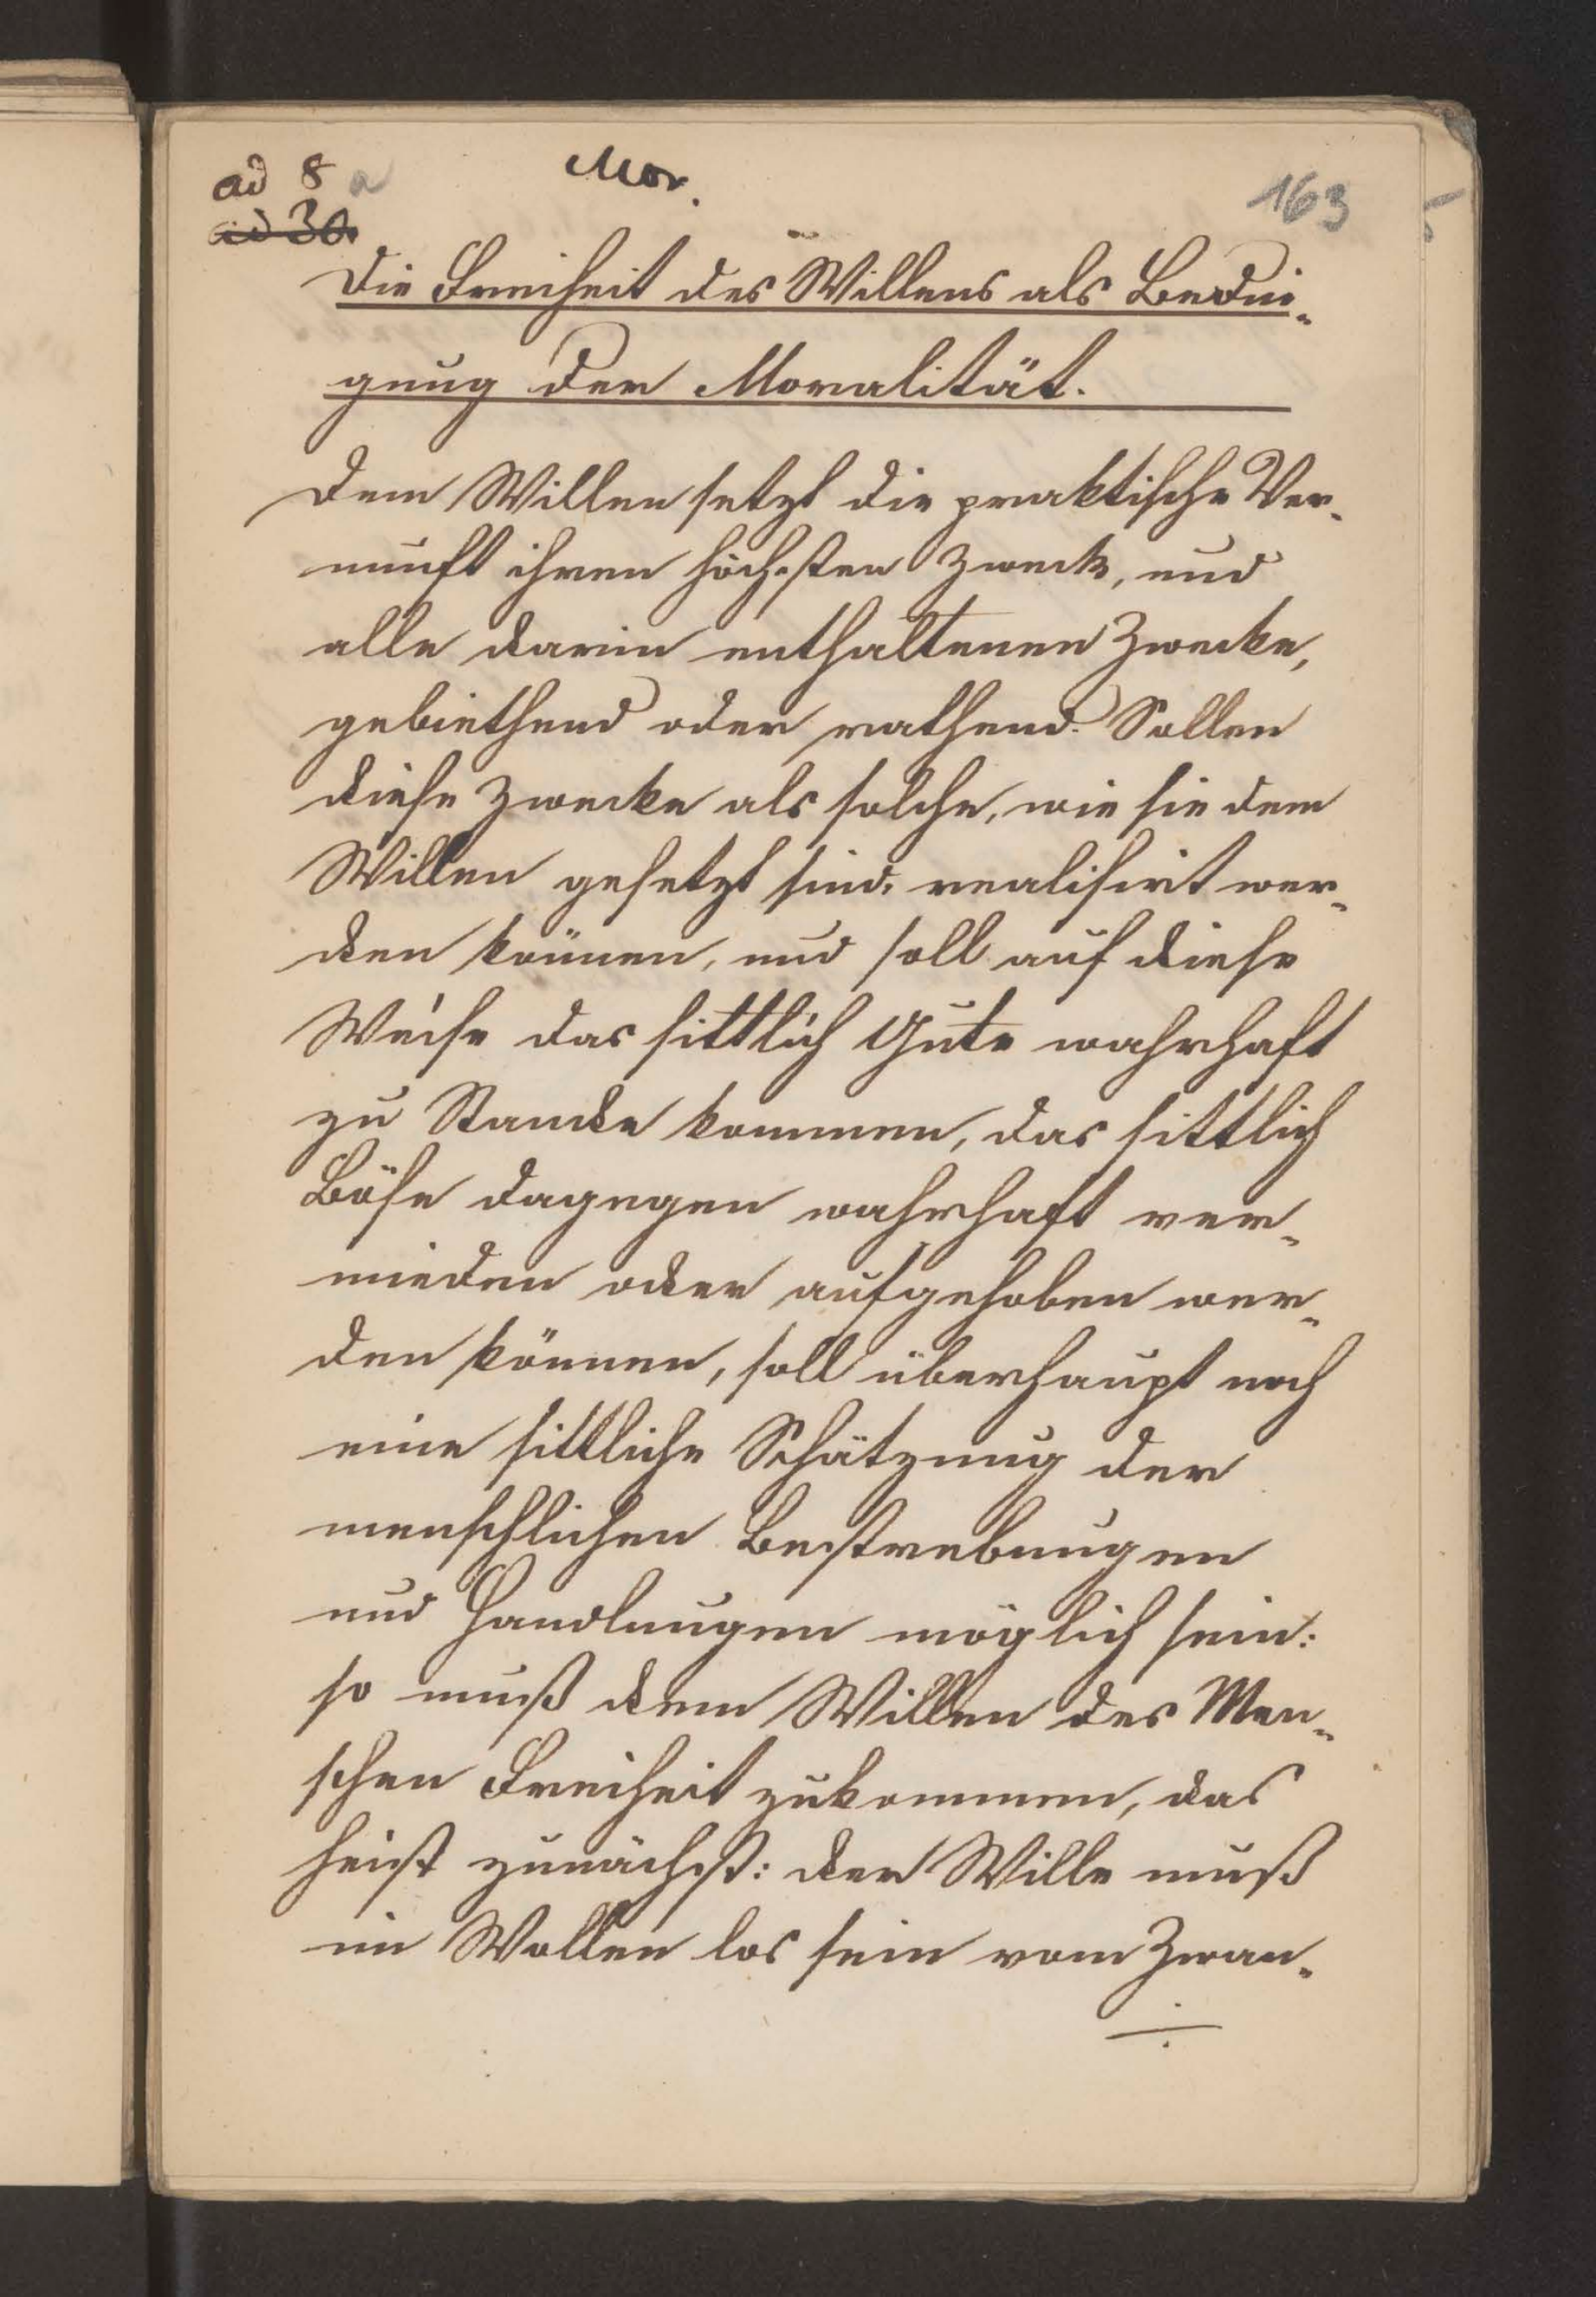 ad 8 a
Mor.
163
ad 30.
Die Freiheit des Willens als Bedin-
gung der Moralität.
Dem Willen setzt die praktische Ver-
nunft ihren höchsten Zweck, und
alle darin enthaltenen Zwecke,
gebiethend oder rathend. Sollen
diese Zwecke als solche, wie sie dem
Willen gesetzt sind, realisirt wer-
den können, und soll auf diese
Weise das sittlich Gute wahrhaft
zu Stande kommen, das sittlich
Böse dagegen wahrhaft ver-
mieden oder aufgehoben wer-
den können, soll überhaupt noch
eine sittliche Schätzung der
menschlichen Bestrebungen
und Handlungen möglich sein:
so muß dem Willen des Men-
schen Freiheit zukommen, das
heißt zunächst: der Wille muß
im Wollen los sein vom Zwan-